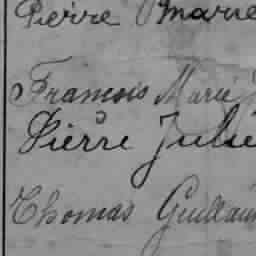 Pierre Marie
François Marie
Pierre Julie
Thomas Guillaum